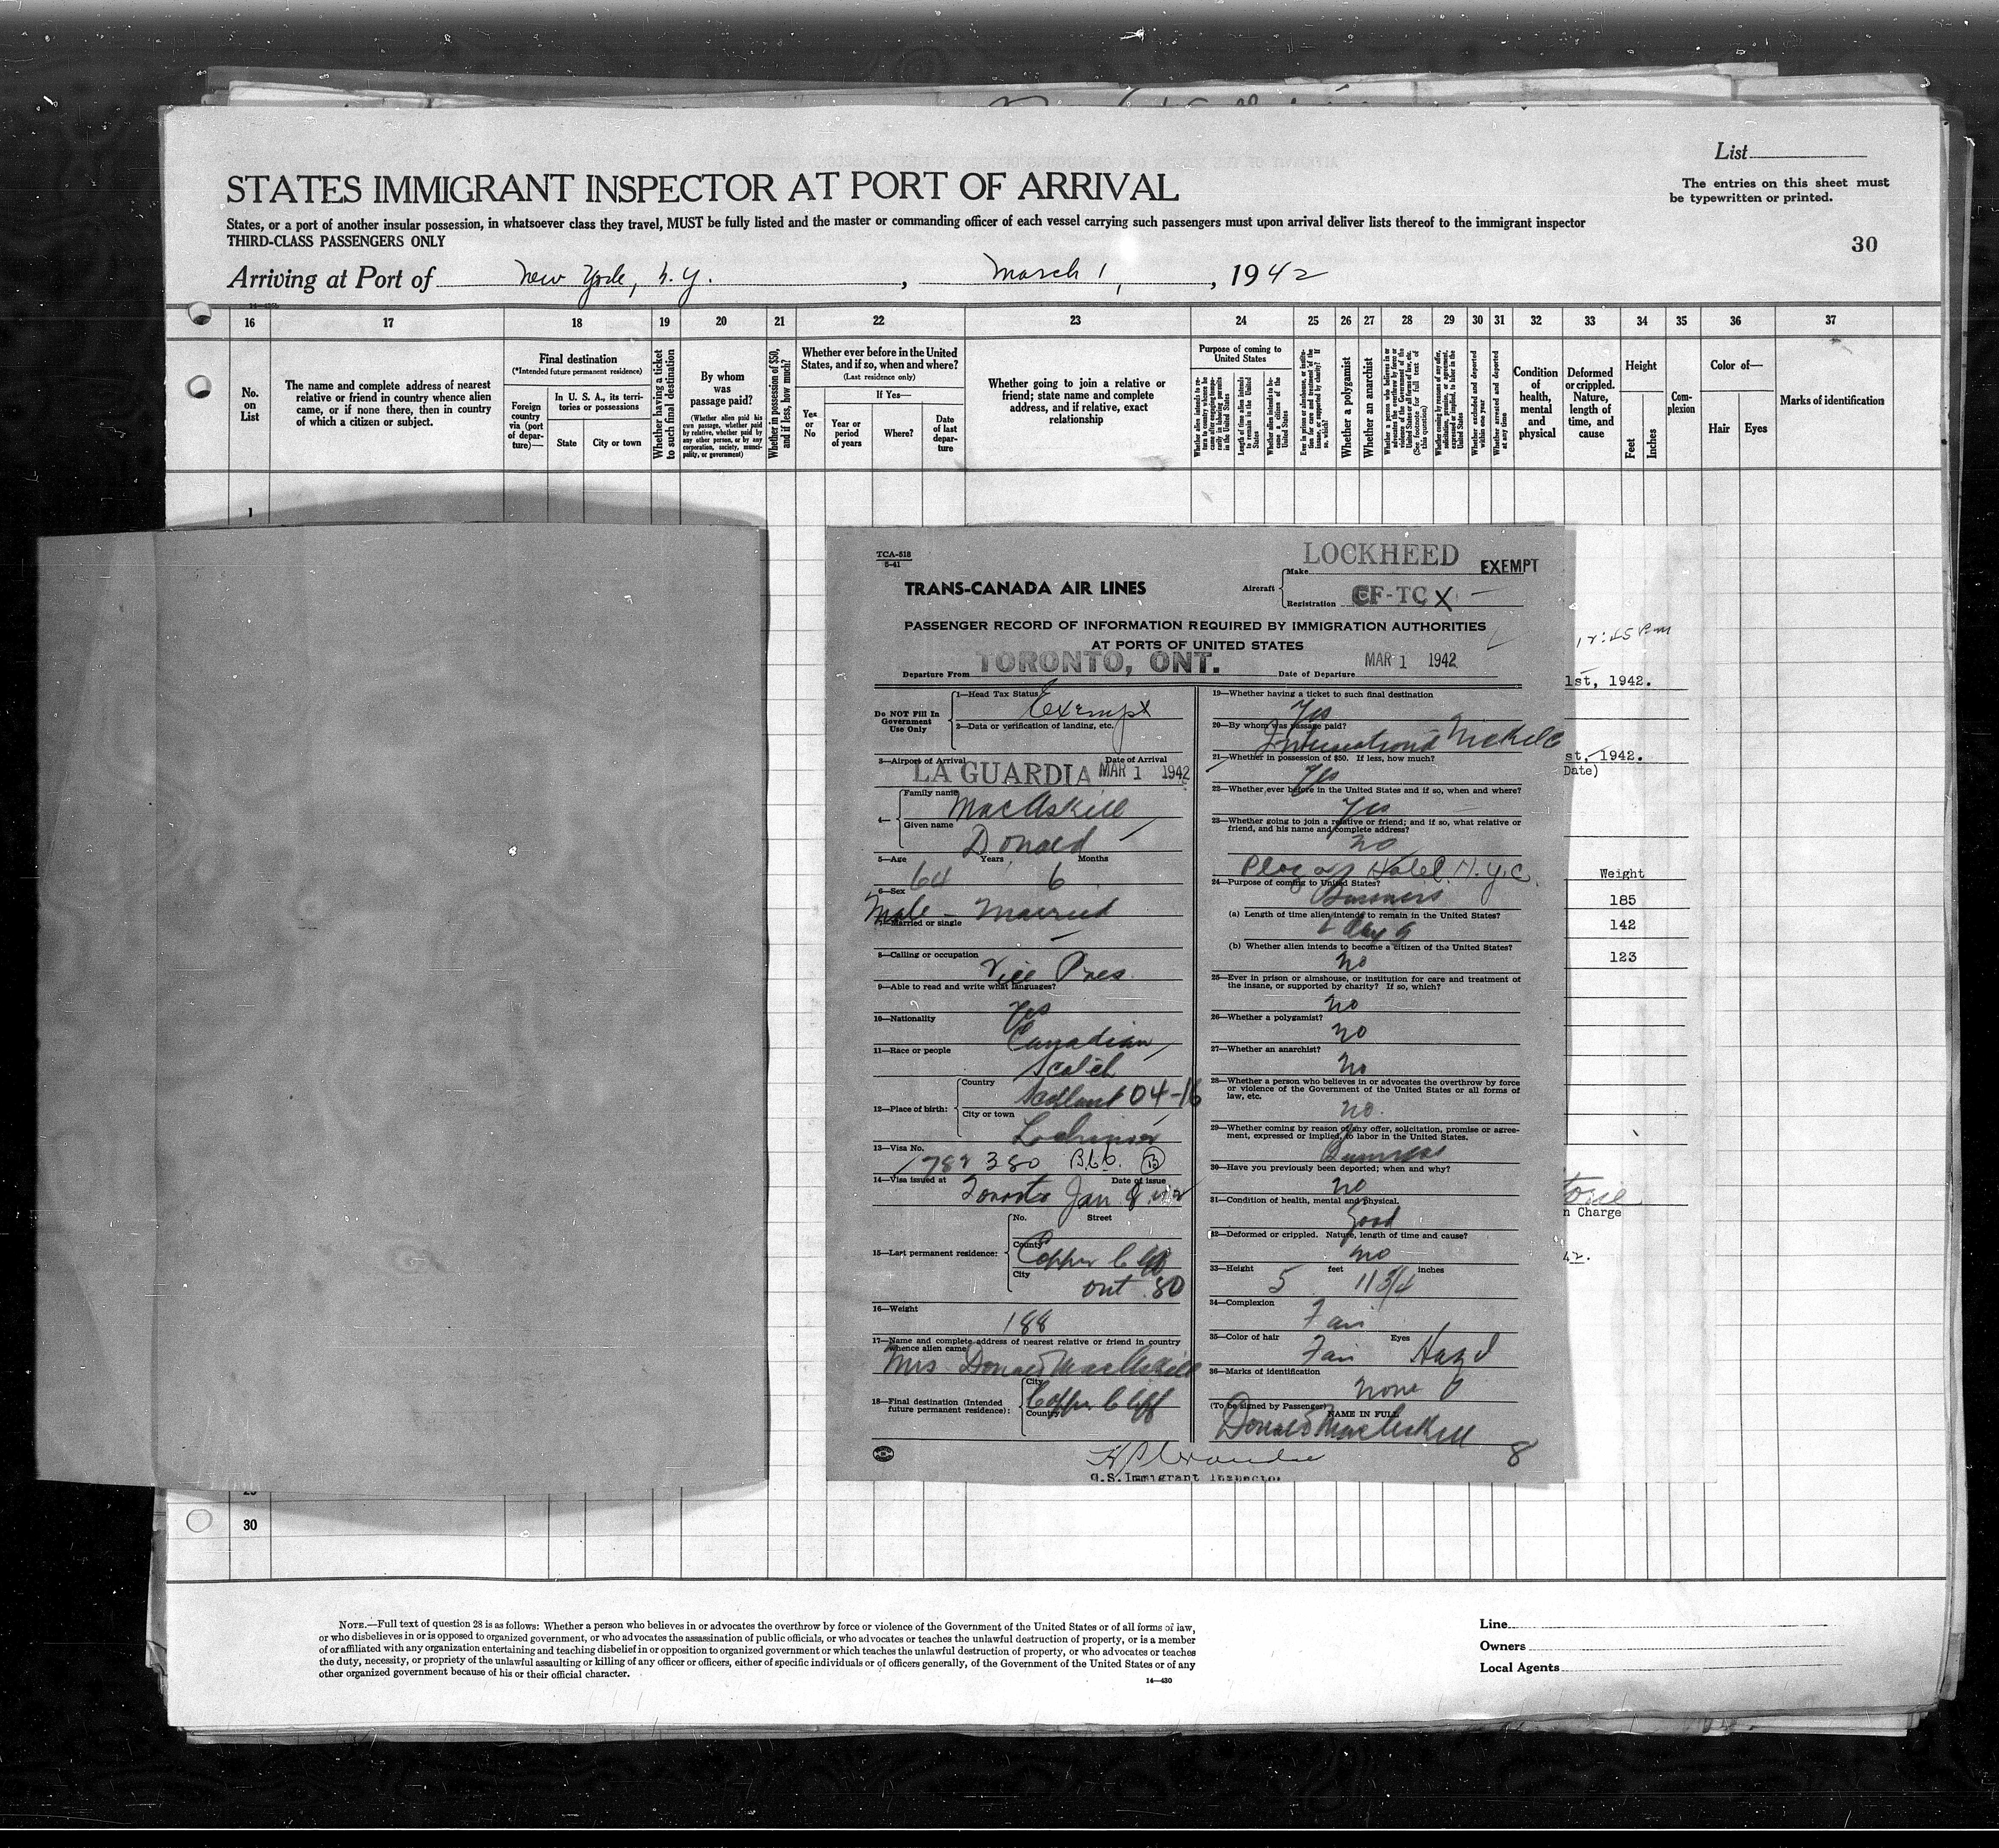 List
The entries on this sheet must
be typewritten or printed.
STATES IMMIGRANT INSPECTOR AT PORT OF ARRIVAL
States, or a port of another insular possession, in whatsoever class they travel, MUST be fully listed and the master or commanding officer of each vessel carrying such passengers must upon arrival deliver lists thereof to the immigrant inspector
THIRD-CLASS PASSENGERS ONLY
30
Arriving at Port of New York, N.Y., March 1, 1942
16 17 18 19 20 21 22 23 24 25 26 27 28 29 30 31 32 33 34 35 36 37
No. on List
The name and complete address of nearest relative or friend in country whence alien came, or if none there, then in country of which a citizen or subject.
Final destination
(*Intended future permanent residence)
Foreign country via (port of departure)—
In U. S. A., its territories or possessions
State
City or town
Whether having a ticket to such final destination
By whom was passage paid?
(Whether alien paid his own passage, whether paid by relative, whether paid by any other person, or by any corporation, society, municipality, or government)
Whether in possession of $50, and if less, how much?
Whether ever before in the United States, and if so, when and where?
(Last residence only)
Yes or No
If Yes—
Year or period of years
Where?
Date of last departure
Whether going to join a relative or friend; state name and complete address, and if relative, exact relationship
Purpose of coming to United States
Length of time alien intends to remain in the United States
Whether alien intends to become a citizen of the United States
Whether a polygamist
Whether an anarchist
Condition of health, mental and physical
Deformed or crippled. Nature, length of time, and cause
Height
Feet
Inches
Complexion
Color of—
Hair
Eyes
Marks of identification
1
TCA-518
5-41
LOCKHEED
EXEMPT
TRANS-CANADA AIR LINES
Aircraft
Make
Registration CF-TC X
PASSENGER RECORD OF INFORMATION REQUIRED BY IMMIGRATION AUTHORITIES
AT PORTS OF UNITED STATES
Departure From TORONTO, ONT.
Date of Departure MAR 1 1942
Do NOT Fill In
Government
Use Only
1—Head Tax Status
Exempt
2—Data or verification of landing, etc.
3—Airport of Arrival
Date of Arrival
LA GUARDIA MAR 1 1942
4—
Family name
MacAskill
Given name
Donald
5—Age Years Months
64 6
6—Sex
Male - Married
7—Married or single
8—Calling or occupation
Vice Pres.
9—Able to read and write what languages?
Yes
10—Nationality
Canadian
11—Race or people
Scotch
12—Place of birth:
Country
Scotland 04-16
City or town
13—Visa No.
380 B.C.C. B
14—Visa issued at Date of issue
Toronto Jan 8
15—Last permanent residence:
No. Street
County
Copper Cliff
City
Ont 80
16—Weight
188
17—Name and complete address of nearest relative or friend in country
whence alien came
Mrs Donald MacAskill
18—Final destination (Intended
future permanent residence):
City
Copper Cliff
Country
19—Whether having a ticket to such final destination
Yes
20—By whom was passage paid?
International Nickel Co
21—Whether in possession of $50. If less, how much?
Yes
22—Whether ever before in the United States and if so, when and where?
Yes
23—Whether going to join a relative or friend; and if so, what relative or
friend, and his name and complete address?
no
Hotel N.Y.C.
24—Purpose of coming to United States?
Business
(a) Length of time alien intends to remain in the United States?
days
(b) Whether alien intends to become a citizen of the United States?
no
25—Ever in prison or almshouse, or institution for care and treatment of
the insane, or supported by charity? If so, which?
no
26—Whether a polygamist?
no
27—Whether an anarchist?
no
28—Whether a person who believes in or advocates the overthrow by force
or violence of the Government of the United States or all forms of
law, etc.
no.
29—Whether coming by reason of any offer, solicitation, promise or agree-
ment, expressed or implied, to labor in the United States.
Business
30—Have you previously been deported; when and why?
no
31—Condition of health, mental and physical.
Good
32—Deformed or crippled. Nature, length of time and cause?
no
33—Height feet inches
5 11 3/4
34—Complexion
Fair
35—Color of hair Eyes
Fair Hazel
36—Marks of identification
none
(To be signed by Passenger)
NAME IN FULL
Donald MacAskill
8
U.S. Immigrant Inspector
12:45 P.M
1st, 1942.
st, 1942.
Date)
Weight
185
142
123
n Charge
42.
30
NOTE.—Full text of question 28 is as follows: Whether a person who believes in or advocates the overthrow by force or violence of the Government of the United States or of all forms of law,
or who disbelieves in or is opposed to organized government, or who advocates the assassination of public officials, or who advocates or teaches the unlawful destruction of property, or is a member
of or affiliated with any organization entertaining and teaching disbelief in or opposition to organized government or which teaches the unlawful destruction of property, or who advocates or teaches
the duty, necessity, or propriety of the unlawful assaulting or killing of any officer or officers, either of specific individuals or of officers generally, of the Government of the United States or of any
other organized government because of his or their official character.
14—430
Line
Owners
Local Agents